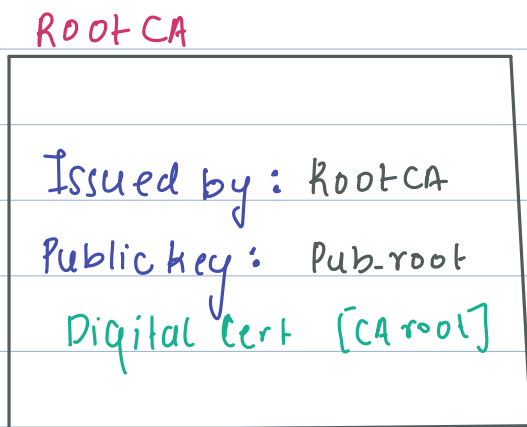 Root CA
Issued by: RootCA
Public key: Pub-root
Digital Cert [CA root]